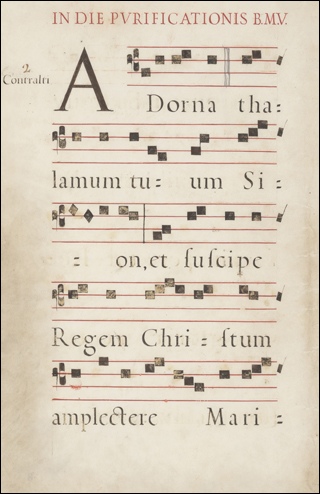 IN DIE PVRIFICATIONIS B.M.V.
2
Contralti
ADorna tha:
lamum tu: um Si:
: on, et ſuſcipe
Regem Chri: ſtum
amplectere Mari: